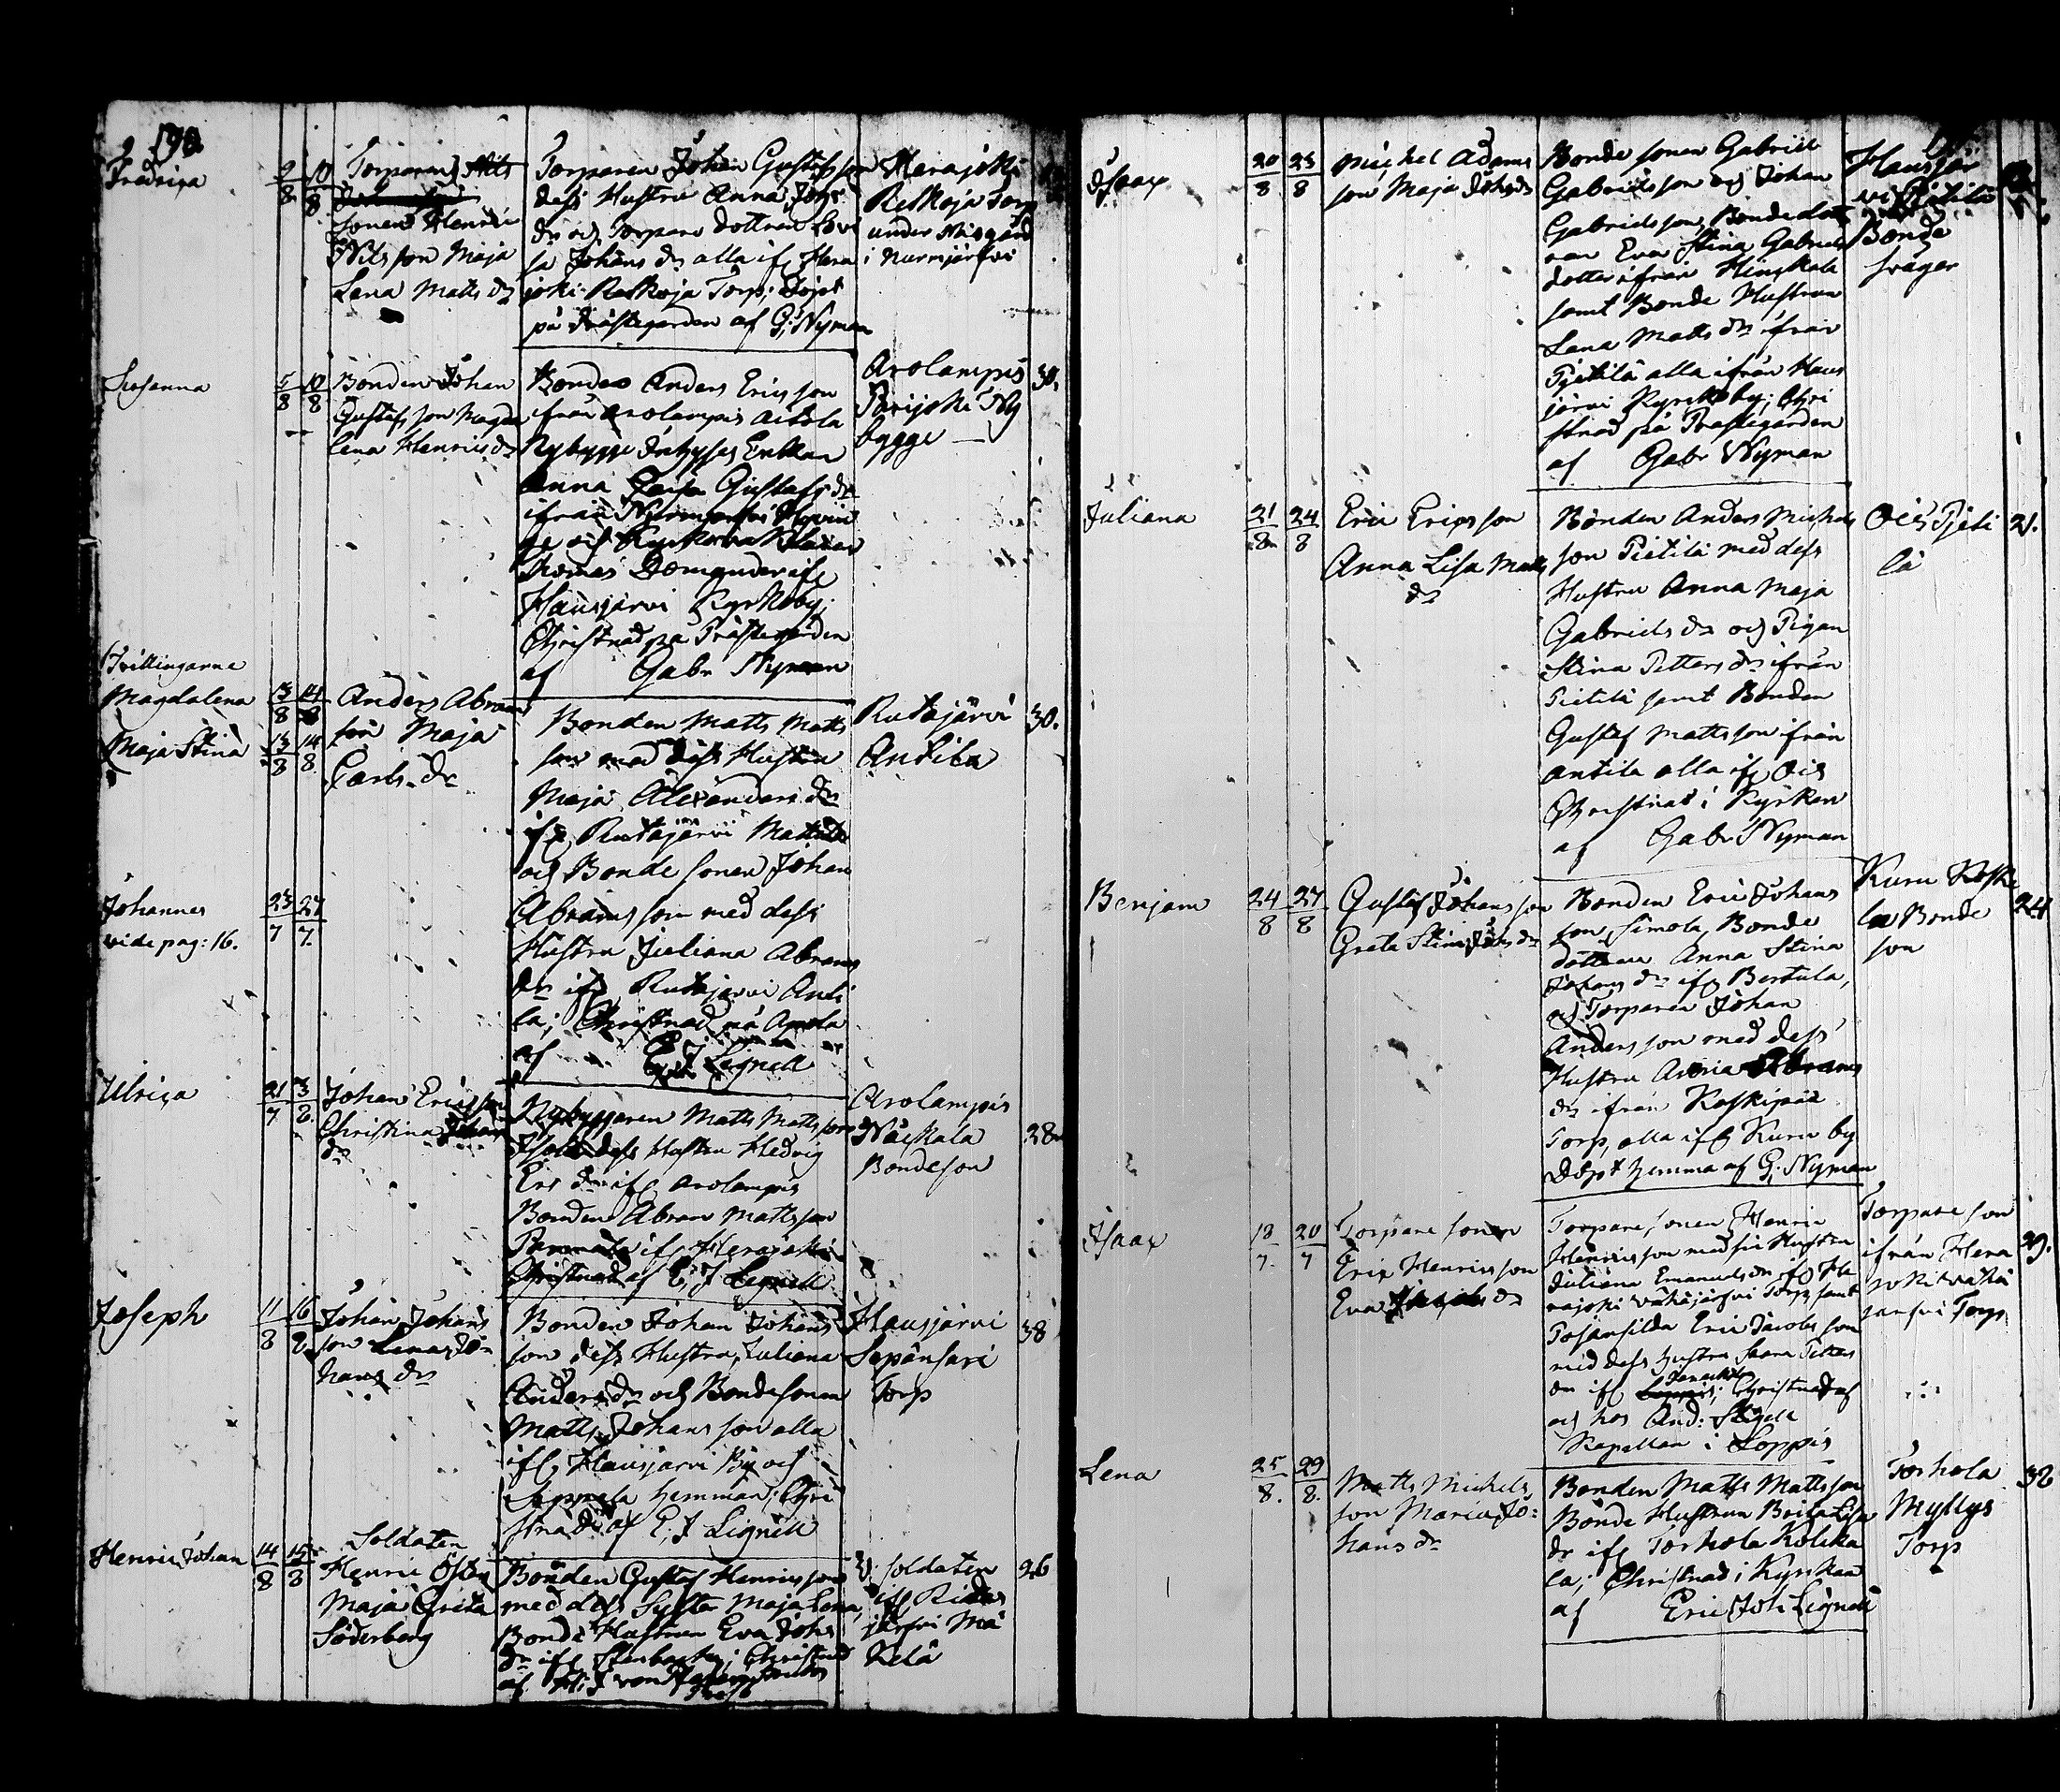 190.
Fredrica
2/8 10/8
Torparen Nils
sonen Henric
Nilsson Maja
Lena Matts dr
Torparen Johan Gustafsson
dess Hustru Anna Johs
dr och Torpare dottren Lovi
sa Johans dr alla ifr Hera
joki Retkoja Torp; döpt
på Prästegården af G: Nyman
Herajoki
Retkoja Torp
under
i Nurmijärfvi
Susanna
5/8 10/8
Bonden Johan
Gustafsson Magda
lena Henrics dr
Bonden Anders Ericsson
ifrån Arolampis
Nybygge Inhyses Enkan
Anna Gustafs dr
ifrån
och
Thomas Domander ifr
Hausjärvi Kyrkoby;
Christnad på Prästegården
af Gabr Nyman
Arolampis
Parijoki Ny
bygge
30.
Tvillingarne
Magdalena
13/8 14/8
Maja Stina
13/8 14/8
Anders Abram
son Maja
Carls dr
Bonden Matts Matts
son med dess Hustru
Maja Alexanders dr
ifr Rutajärvi
och Bonde sonen Johan
Abramsson med dess
Hustru Juliana Abrams
dr ifr Rutajärvi Anti
la; Christnad på
af E J Lignell
Rutajärvi
Antila
30.
Johannes
vide pag: 16.
23/7 27/7
Ulrica
21/7 3/8
Johan Ericsson
Christina Johans
dr
Nybyggaren Matts Mattsson
dess Hustru Hedvig
Erics dr ifr Arolampis
Bonden Abram Mattsson
ifr Herajoki
Christnad af E: J Lignell
Arolampis
Näckala
Bondeson
28
Joseph
11/8 16/8
Johan Johans
son Lena Jo
hans dr
Bonden Johan Johans
son dess Hustru Juliana
Anders dr och Bondesonen
Matts Johansson alla
ifr Hausjärvi By och
Seppela hemman; Chri
stnad af E: J Lignell
Hausjärvi
Sepänsari
Torp
38
Henric Johan
14/8 15/8
Soldaten
Henric Öster
Maja Greta
Söderberg
Bonden Gustaf Henricsson
med dess Syster Maja Lena,
Bonde Hustrun Eva Johs
dr ifr; Christnad
af
V. Soldaten
ifr Ridas
järfvi Mä
kelä
26
Isaac
20/8 23/8
Michel Adams
son Maja Johs dr
Bonde sonen Gabriel
Gabrielsson och Johan
Gabrielsson, Bondedott
ran Eva Stina Gabriels
dotter ifrån Hinskala
samt Bonde Hustrun
Lena Matts dr ifrån
Pietilä alla ifrån Haus
järvi Kyrckoby; Chri
stnad på Prästegården
af Gabr Nyman
Hausjär
vi Pietilä
Bonde
svåger
Juliana
21/8 24/8
Eric Ericsson
Anna Lisa Matts
dr
Bonden Anders Michels
son Pietilä med dess
Hustru Anna Maja
Gabriels dr och Pigan
Stina Petters dr ifrån
Pietilä samt Bonden
Gustaf Mattsson ifrån
Antila alla ifr Ois
Christnad i Kyrkan
af Gabr Nyman
Ois Pjeti
lä
21.
Benjam
24/8 27/8
Gustaf Johansson
Greta Stina Johs dr
Bonden Eric Johans
son Simola, Bonde
dottren Anna Stina
Johans dr ifr Bertula,
och Torparen Johan
Andersson med dess
Hustru Anna Abrams
dr ifrån Koskipää
Torp, alla ifr Kuru by
Döpt hemma af G: Nyman
Kuru Koske
la Bonde
son
24
Isaac
18/7 20/7
Torpare sonen
Eric Henricsson
Eva dr
Torpare sonen Henric
Henricsson med sin Hustru
Juliana Emanuels dr ifr He
rajoki Vähäjärfvi Torp samt
Eric Jacobsson
med dess hustru Saara Petters
dr ifr Christnad af
och hos And:
Kapellan i Loppis
Torpare son
ifrån Hera
joki Vähä
järfvi Torp
29.
Lena
25/8. 29/8.
Matts Michels
son Maria Jo:
hans dr
Bonden Matts Mattsson
Bonde Hustrun Brita Lisa
dr ifr Torhola Kolcka
la; Christnad i Kyrckan
af Eric Joh Lignell
Torhola
Myllys
Torp
32